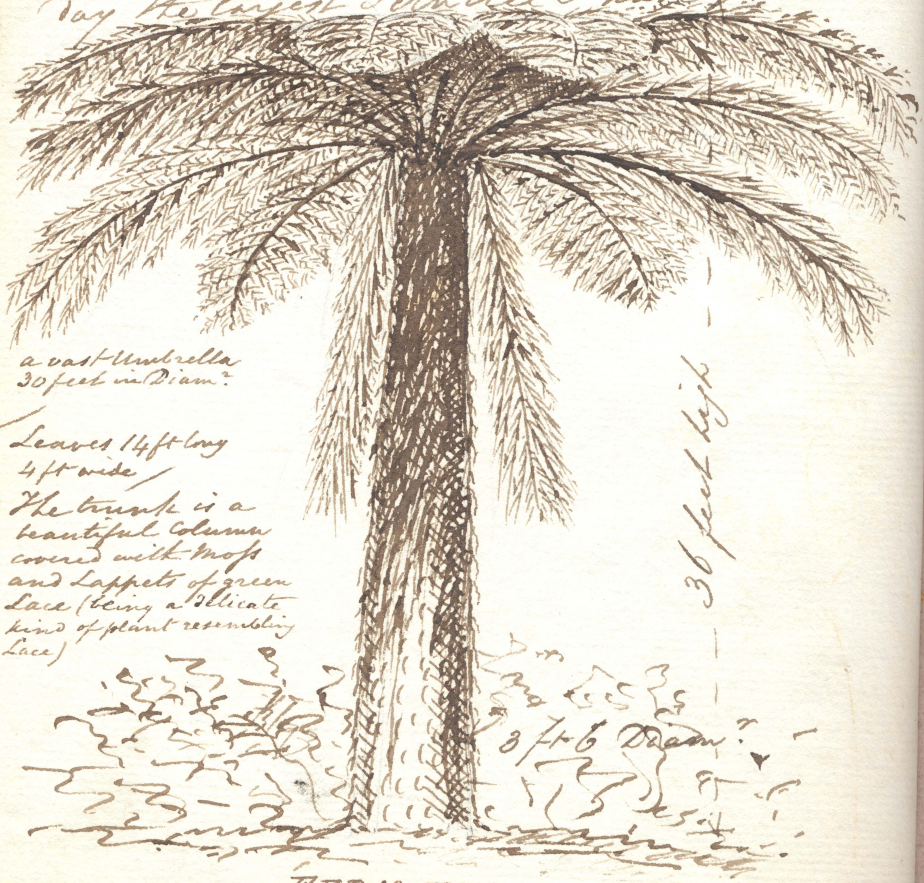 Day the largest
a vast Umbrella
30 feet in Diamr
Leaves 14 ft long
4 ft wide
The trunk is a
beautiful Column
covered with Moss
and Lappets of green
Lace (being a delicate
kind of plant resembling
Lace)
36 feet high
3 ft 6 Diamr